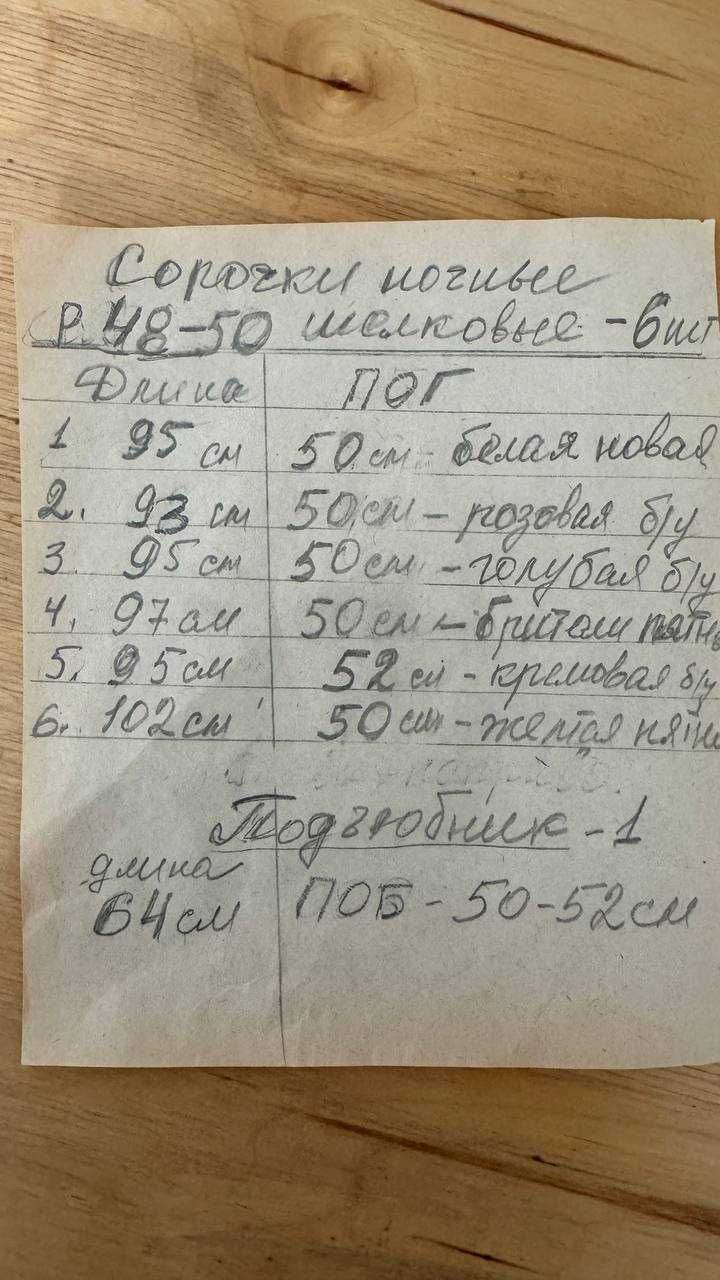 Сорочки ночные
Р. 48-50 шелковые - 6 шт
Длина ПОГ
1 95 см 50 см - белая новая
2. 93 см 50 см - розовая б/у
3. 95 см 50 см - голубая б/у
4. 97 см 50 см -
5. 95 см 52 см - кремовая б/у
6. 102 см 50 см - желтая
Подъюбник - 1
длина
64 см ПОБ - 50-52 см